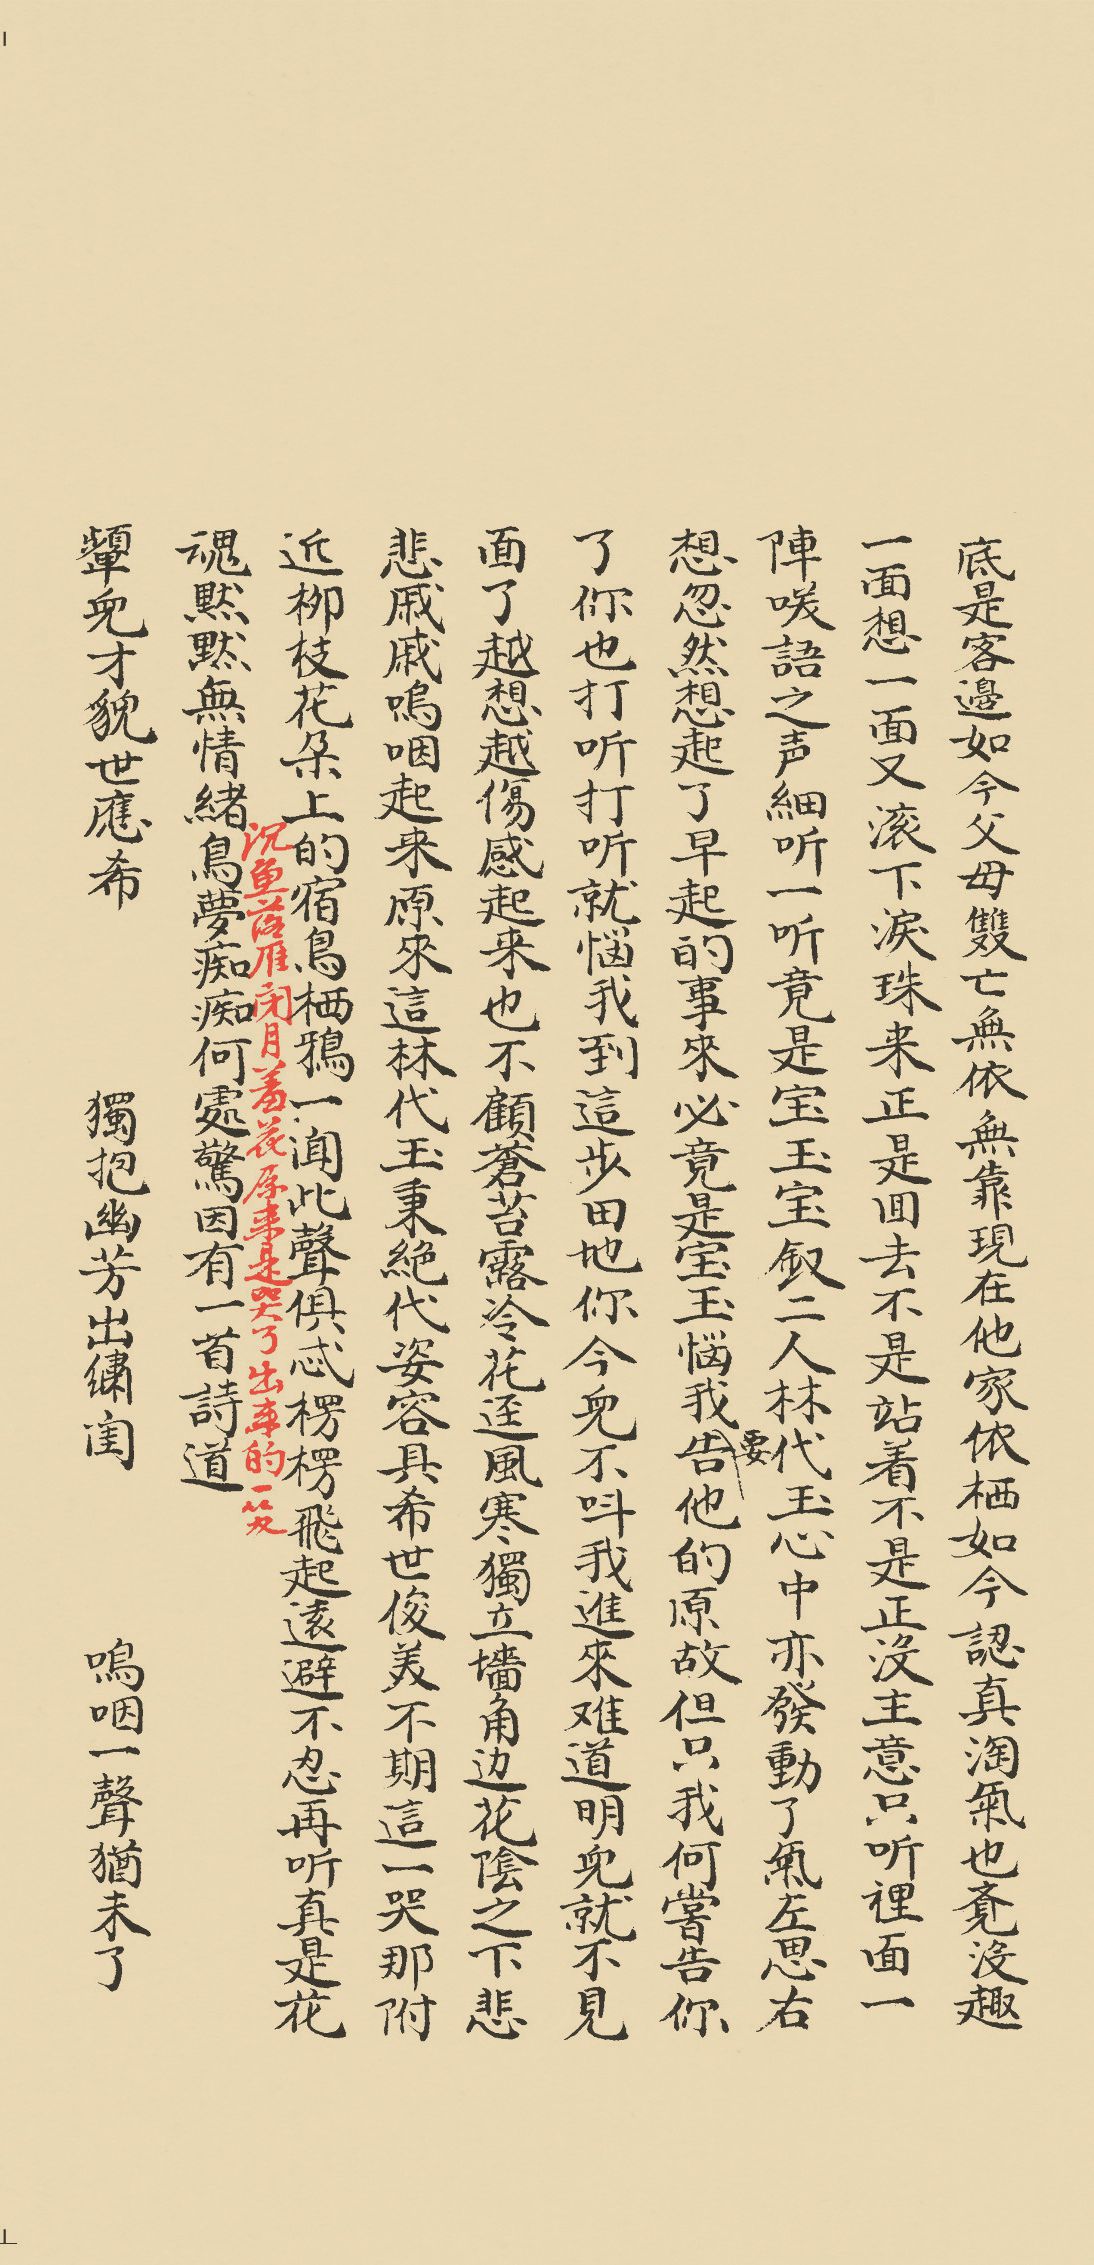 底是客邊如今父母雙亡無依無靠現在他家依栖如今認真淘氣也覔沒趣
一面想一面又滚下淚珠来正是回去不是站着不是正沒主意只听裡面一
陣咲語之声細听一听竟是宝玉宝釵二人林代玉心中亦發動了氣左思右
想忽然想起了早起的事來必竟是宝玉惱我告他的原故但只我何嘗告你
要
了你也打听打听就惱我到這步田地你今兒不呌我進來难道明兒就不見
面了越想越傷感起来也不顧蒼苔露冷花逕風寒獨立墙角边花陰之下悲
悲戚戚嗚咽起来原來這林代玉秉絶代姿容具希世俊美不期這一哭那附
近栁枝花朵上的宿鳥栖鴉一闻此聲俱忒楞楞飛起遠避不忍再听真是花
沉魚落雁闭月羞花原来是哭了出来的一笑
魂黙黙無情緒鳥夢痴痴何處驚因有一首詩道
顰兒才貌世應希 獨抱幽芳出繡闺 嗚咽一聲猶未了